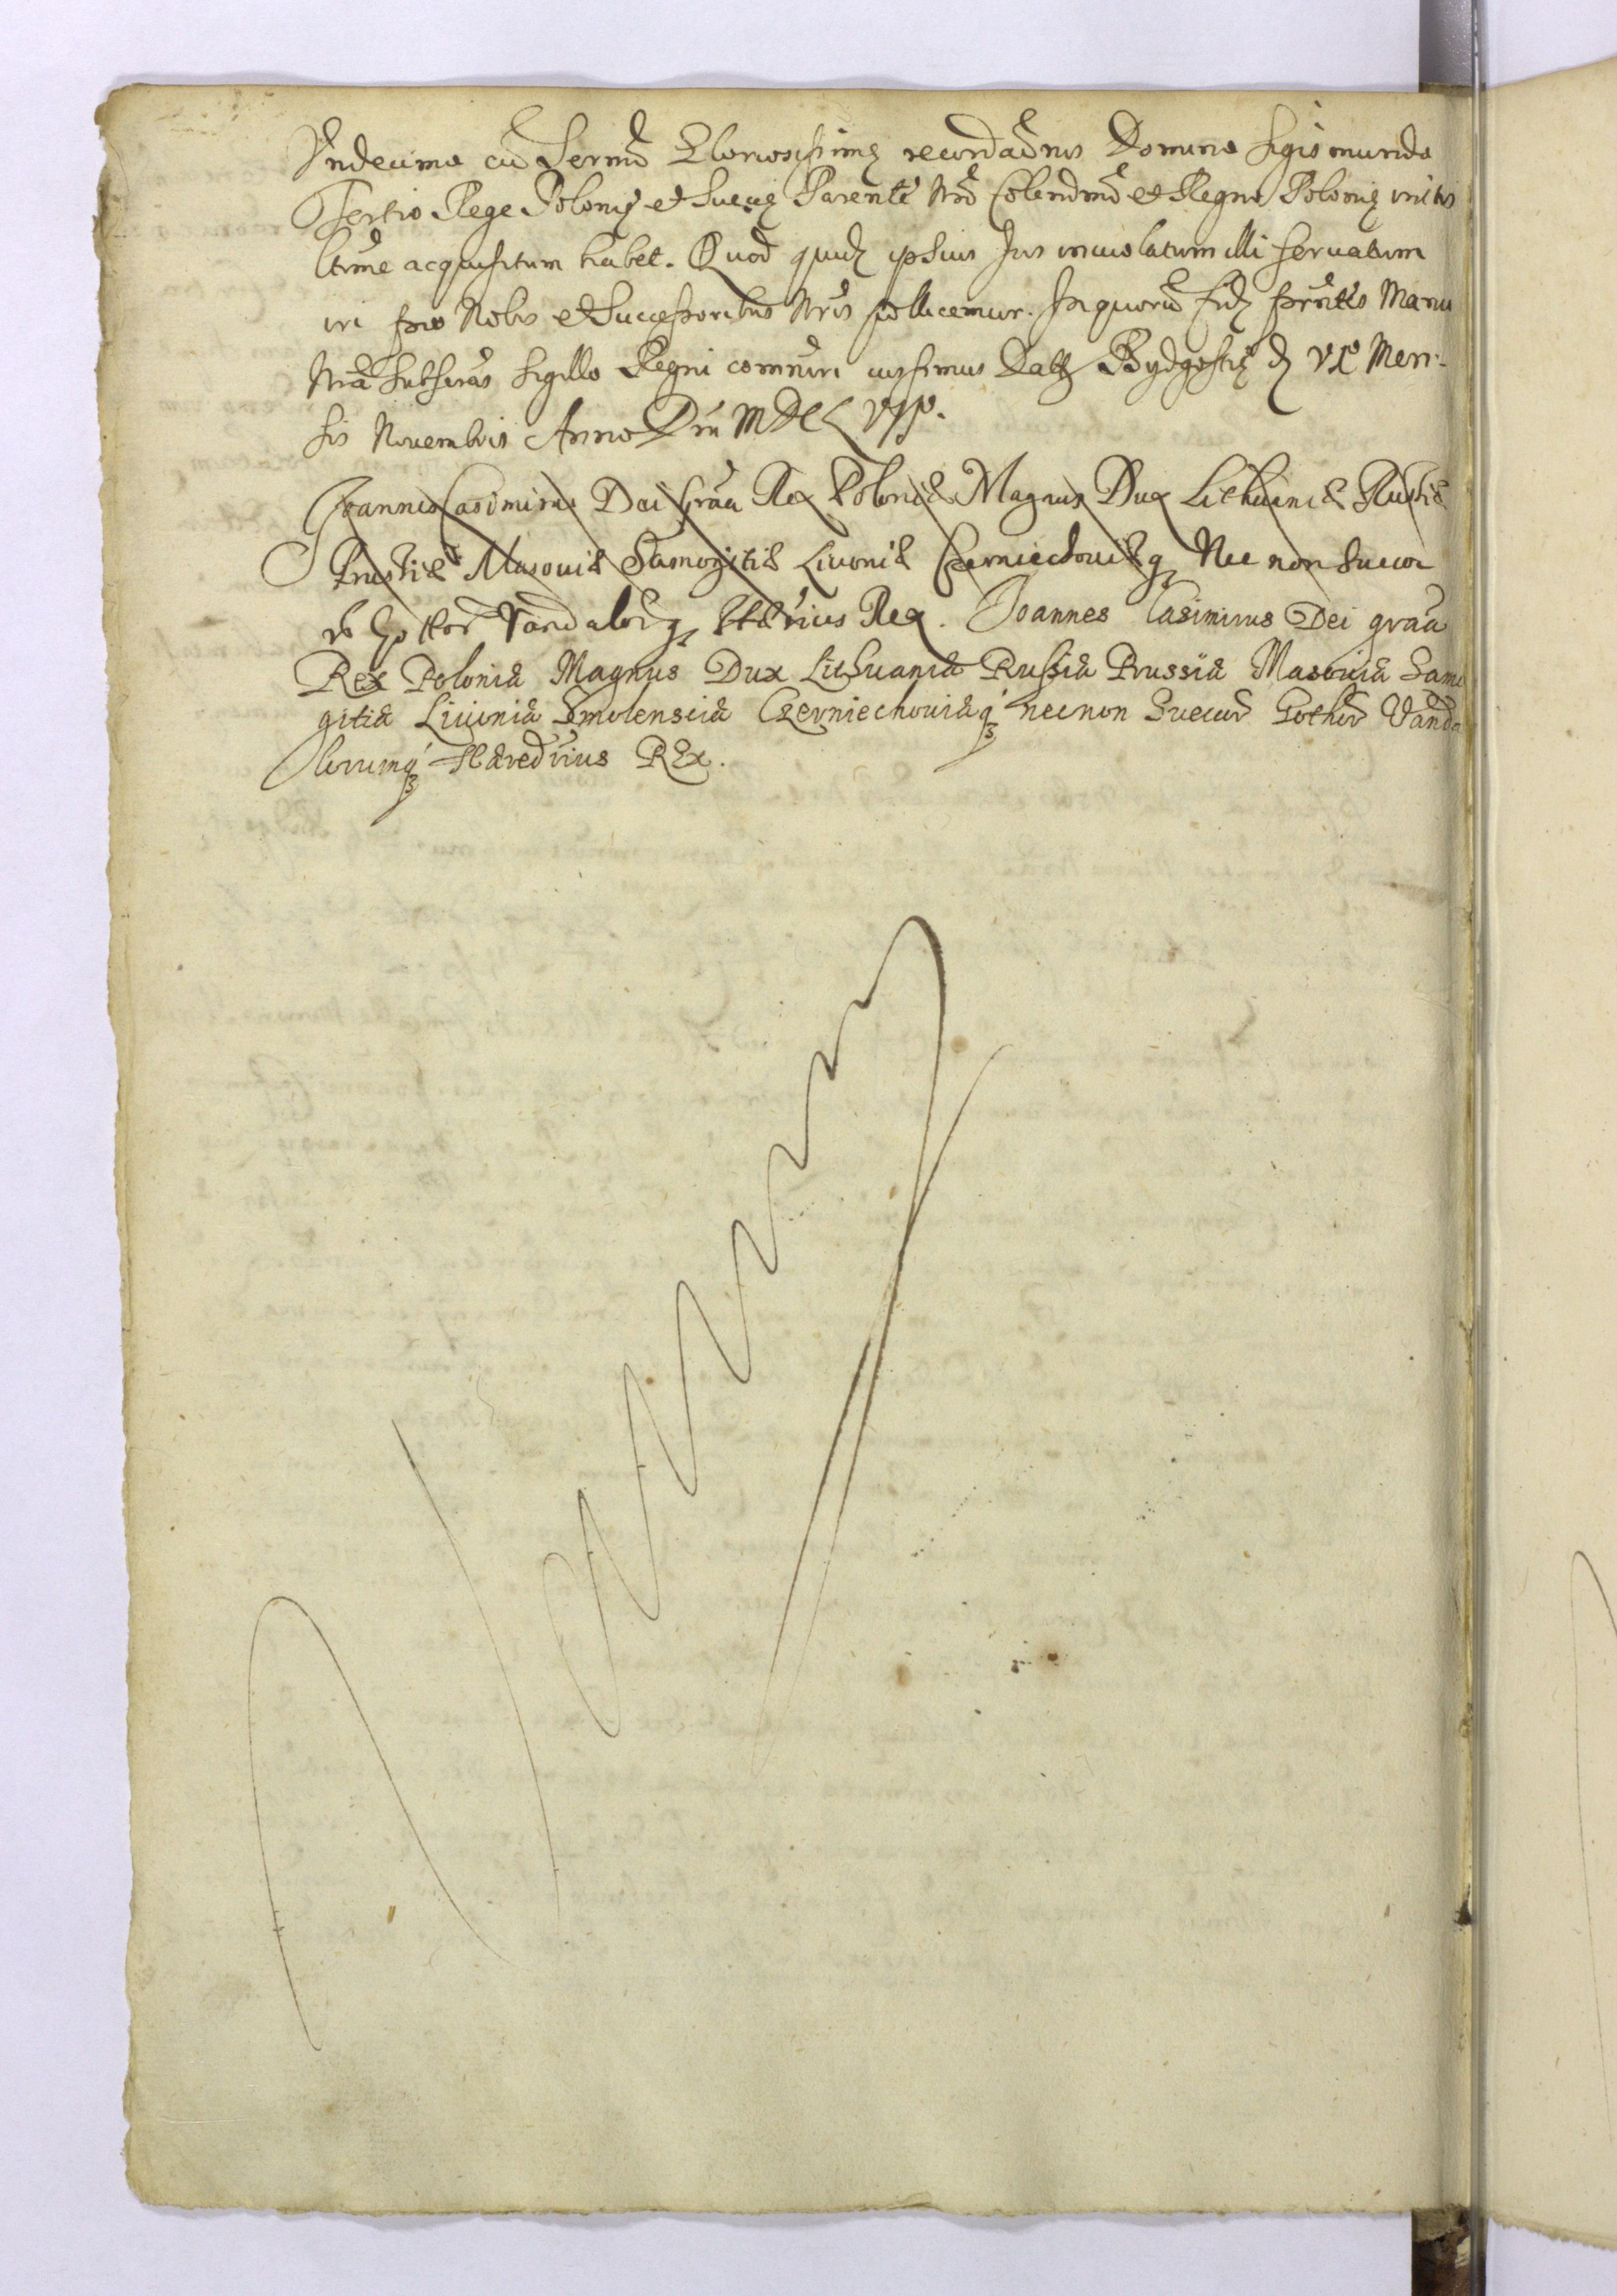 Vndecimo cũ Sermõ Gloriosissimę recordaõnis Domino Sigismundo
Tertio Rege Polonię et Suecię Parente Nrõ Colendmõ et Regno Polonię initis
ltime acquisitum habet. Quod quidę ipsius Jus inuiolatum illi seruatum
iri pro Nobis et Successoribus Nris pollicemur. In quorũ fidę prntes Manu
Nrã subscras Sigillo Regni comuniri iussimus Datt Bydgostię d VI Men:
sis Nouembris Anno Dni MDCLVII.
Joannes Casimirus Dei Grãa Rex Poloniæ Magnus Dux Lithuaniæ Russiæ
Prussiæ Masouiæ Samogitiæ Liuoniæ Czerniechouiæq Nec non Suecor
Gottor Vandalorq Hærius Rex. Joannes Casimirus Dei grãa
Rex Poloniæ Magnus Dux Lithuaniæ Russiæ Prussiæ Masouiæ Samo
gitiæ Liuoniæ Smolensciæ Czerniechouiæq necnon Suecor Gothor Vanda
lorumq Hæredrius REx.